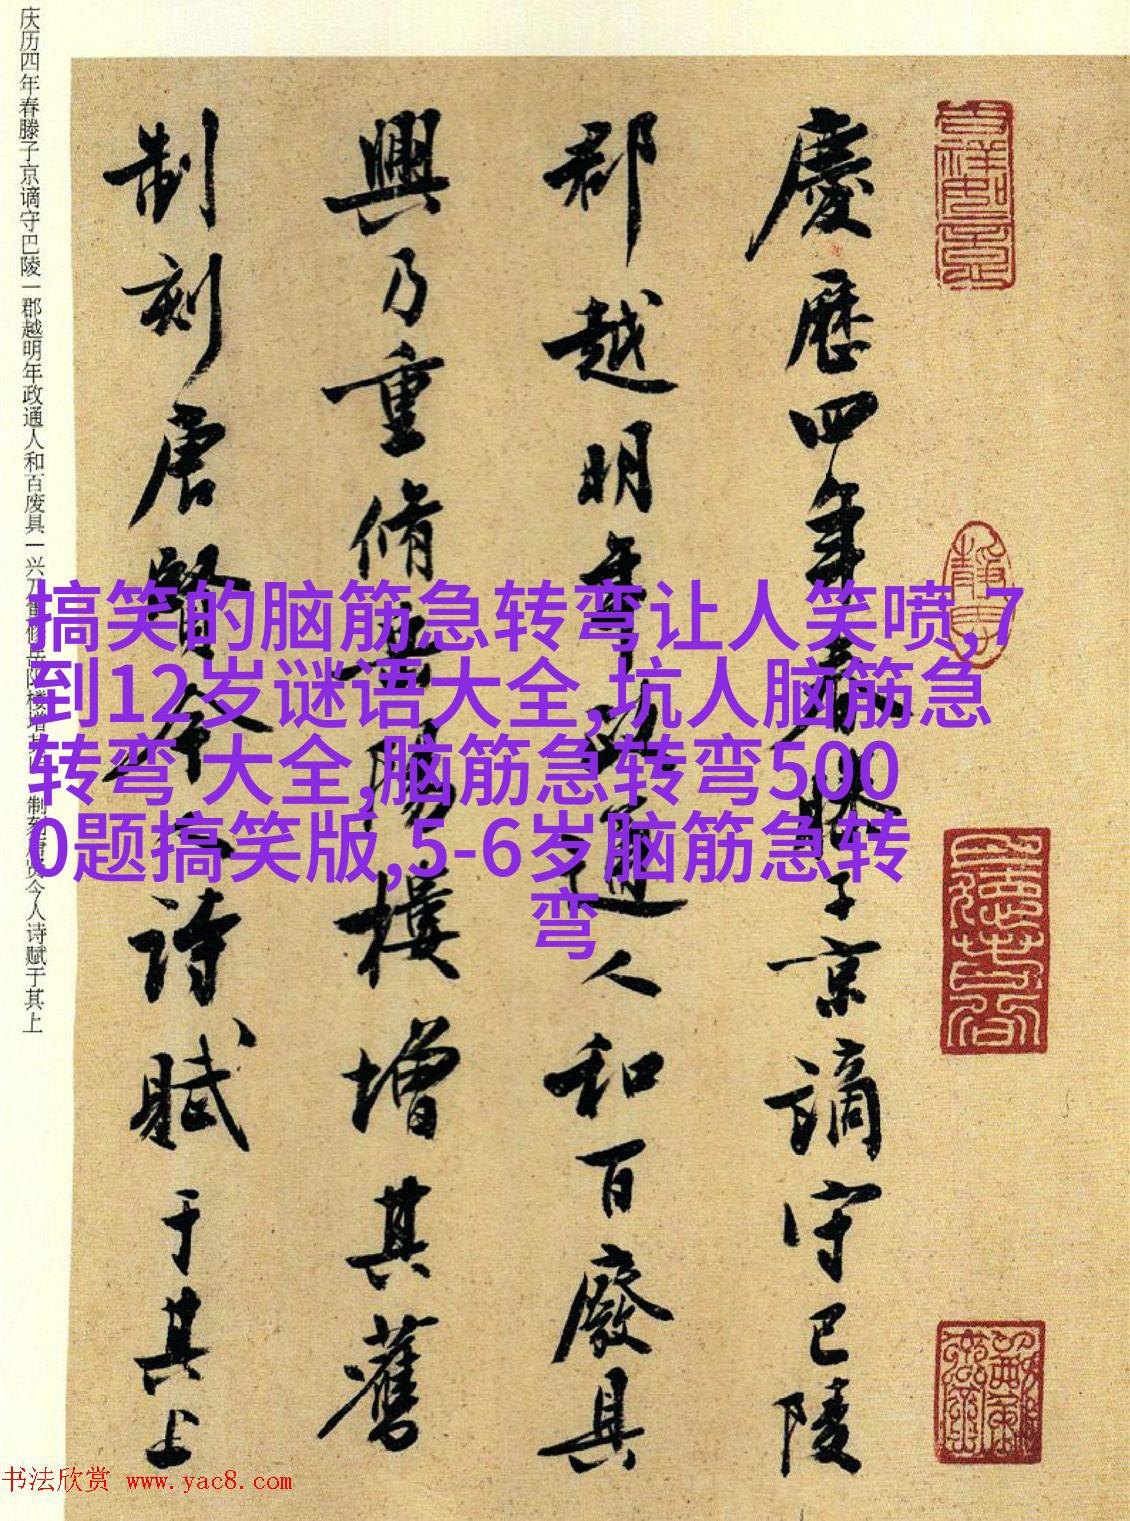 庆历四年春滕子京谪守巴陵一郡越明年政通人和百废具一兴乃重修岳阳楼增其旧制刻唐贤今人诗赋于其上
慶歷四年春滕子京謫守巴陵
郡越明年政通人和百廢具
興乃重脩岳陽樓增其舊
制刻唐賢今人詩賦于其上
搞笑的脑筋急转弯让人笑喷,7
到12岁谜语大全,坑人脑筋急
转弯 大全,脑筋急转弯500
0题搞笑版,5-6岁脑筋急转
弯
书法欣赏 www.yac8.com